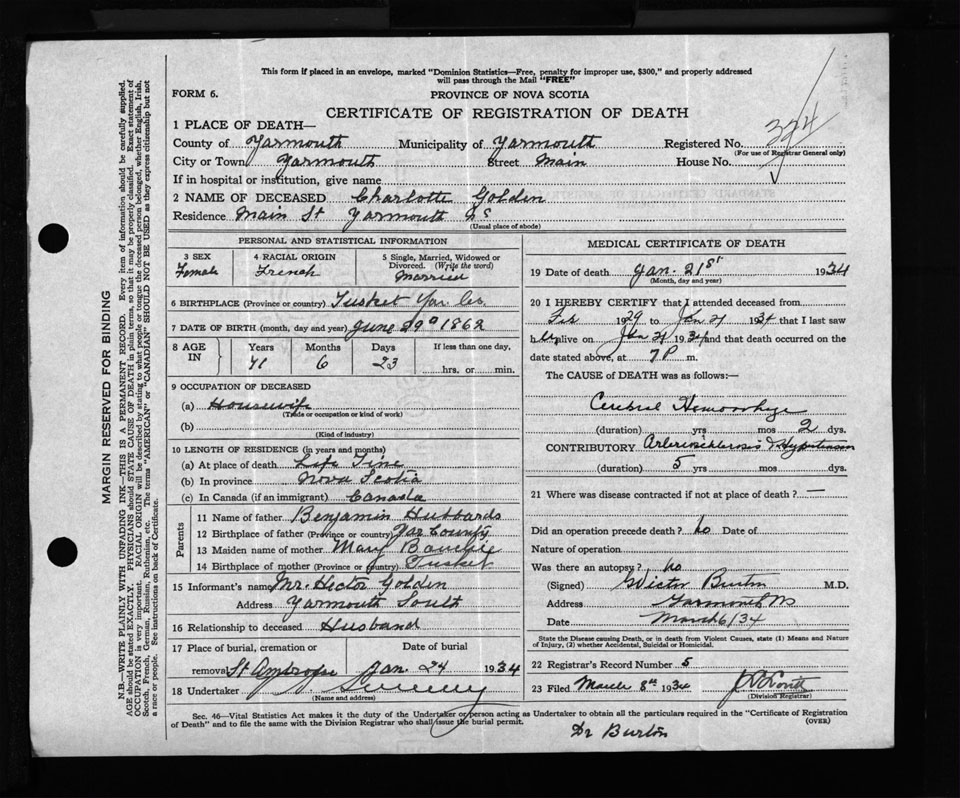 This form if placed in an envelope, marked "Dominion Statistics—Free, penalty for improper use, $300," and properly addressed
will pass through the Mail "FREE"
FORM 6.
PROVINCE OF NOVA SCOTIA
CERTIFICATE OF REGISTRATION OF DEATH
1 PLACE OF DEATH—
County of Yarmouth Municipality of Yarmouth Registered No.
(For use of Registrar General only)
City or Town Yarmouth Street Main House No.
If in hospital or institution, give name
2 NAME OF DECEASED Charlotte Golden
Residence Main St Yarmouth NS
(Usual place of abode)
PERSONAL AND STATISTICAL INFORMATION
3 SEX 4 RACIAL ORIGIN 5 Single, Married, Widowed or
Divorced. (Write the word)
Female French Married
6 BIRTHPLACE (Province or country) Tusket Yar Co.
7 DATE OF BIRTH (month, day and year) June 29 1862
8 AGE IN Years Months Days If less than one day.
71 6 23 hrs. or min.
9 OCCUPATION OF DECEASED
(a) Housewife
(Trade or occupation or kind of work)
(b)
(Kind of industry)
10 LENGTH OF RESIDENCE (in years and months)
(a) At place of death Life Time
(b) In province Nova Scotia
(c) In Canada (if an immigrant) Canada
Parents
11 Name of father Benjamin Hubbards
12 Birthplace of father (Province or country) Yar County
13 Maiden name of mother Mary
14 Birthplace of mother (Province or country) Tusket
15 Informant's name Mr Hector Golden
Address Yarmouth South
16 Relationship to deceased Husband
17 Place of burial, cremation or Date of burial
removal St Ambrose Jan. 24 1934
18 Undertaker
(Name and address)
MEDICAL CERTIFICATE OF DEATH
19 Date of death Jan. 21st 1934
(Month, day and year)
20 I HEREBY CERTIFY that I attended deceased from
1929 to Jan 21 1934 that I last saw
her alive on Jan 21 1934 and that death occurred on the
date stated above, at 7 P m.
The CAUSE of DEATH was as follows:—
Cerebral Hemorrhage
(duration) yrs mos 2 dys.
CONTRIBUTORY Arteriosklerosis & Hypertension
(duration) 5 yrs mos dys.
21 Where was disease contracted if not at place of death? —
Did an operation precede death? no Date of
Nature of operation
Was there an autopsy? no
(Signed) Burton M.D.
Address Yarmouth NS
Date March 6/34
State the Disease causing Death, or in death from Violent Causes, state (1) Means and Nature
of Injury, (2) whether Accidental, Suicidal or Homicidal.
22 Registrar's Record Number 5
23 Filed March 8th 1934
(Division Registrar)
Sec. 46—Vital Statistics Act makes it the duty of the Undertaker or person acting as Undertaker to obtain all the particulars required in the "Certificate of Registration
of Death" and to file the same with the Division Registrar who shall issue the burial permit. (OVER)
Dr Burton
MARGIN RESERVED FOR BINDING
N.B.—WRITE PLAINLY WITH UNFADING INK—THIS IS A PERMANENT RECORD. Every item of information should be carefully supplied.
AGE should be stated EXACTLY. PHYSICIANS should STATE CAUSE OF DEATH in plain terms, so that it may be properly classified. Exact statement of
OCCUPATION is very important. RACIAL ORIGIN will be described by stating to what people or tongue the deceased person belonged, whether English, Irish,
Scotch, French, German, Russian, Ruthenian, etc. The terms "AMERICAN" or "CANADIAN" SHOULD NOT BE USED as they express citizenship but not
a race or people. See instructions on back of Certificate.